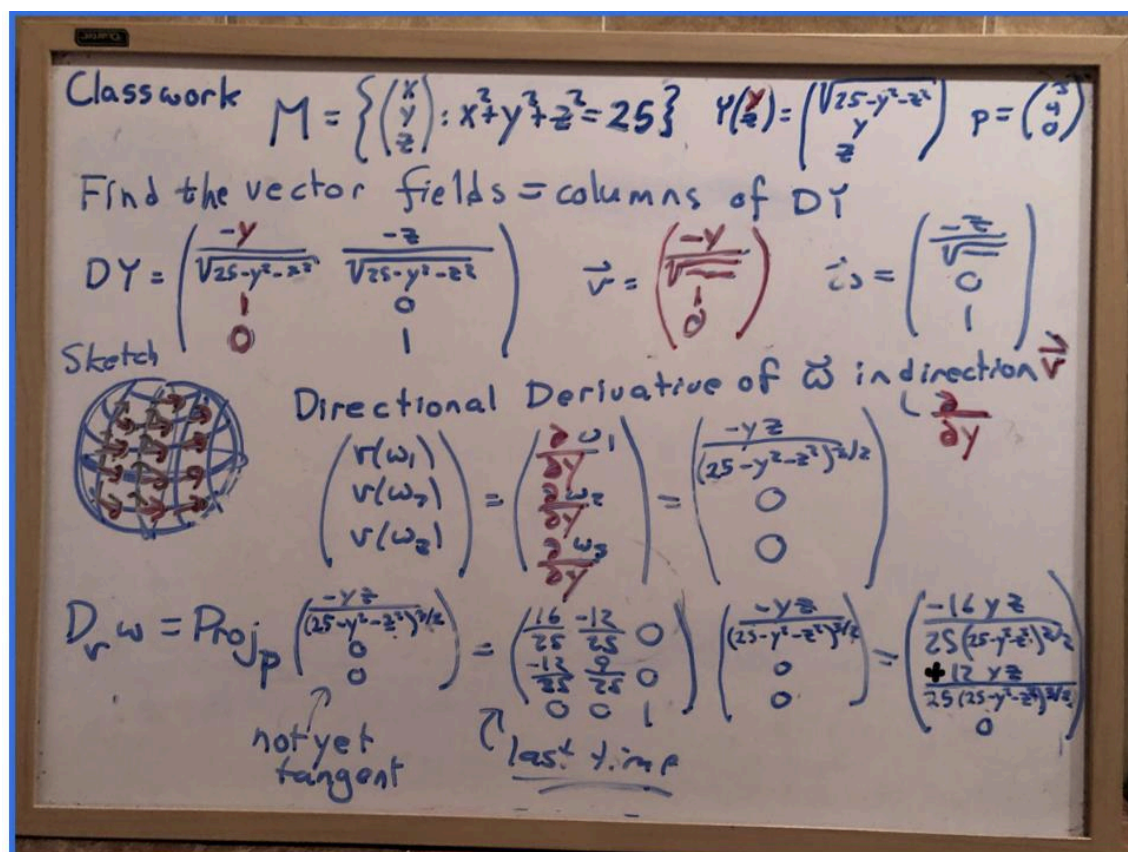 Classwork M = {(x y z) : x²+y²+z²=25} Y(y z) = (√25-y²-z² y z) p = (3 4 0)
Find the vector fields = columns of DY
DY = (-y/√25-y²-z² -z/√25-y²-z² 1 0 0 1) v⃗ = (-y/√ 1 0) ω⃗ = (-z/√ 0 1)
Sketch
Directional Derivative of ω⃗ in direction v⃗
∂/∂y
(v(ω₁) v(ω₂) v(ω₃)) = (∂/∂y ω₁ ∂/∂y ω₂ ∂/∂y ω₃) = (-yz/(25-y²-z²)^3/2 0 0)
D_v ω = Proj_p (-yz/(25-y²-z²)^3/2 0 0) = (16/25 -12/25 0 -12/25 9/25 0 0 0 1) (-yz/(25-y²-z²)^3/2 0 0) = (-16yz/25(25-y²-z²)^3/2 +12yz/25(25-y²-z²)^3/2 0)
not yet
tangent
last time